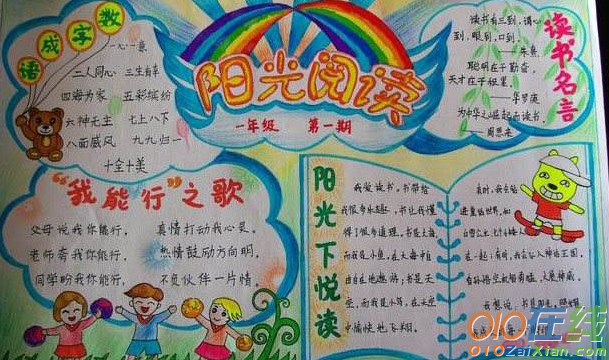 数字成语
一心一意
二人同心 三生有幸
四海为家 五彩缤纷
六神无主 七上八下
八面威风 九九归一
十全十美
阳光阅读
一年级 第一期
读书有三到，谓心
到，眼到，口到。
——朱熹
聪明在于勤奋，
天才在于积累。
——华罗庚
为中华之崛起而读书
——周恩来
读书名言
“我能行”之歌
父母说我你能行， 真情打动我心灵。
老师夸我你能行， 热情鼓励方向明。
同学盼我你能行， 不负伙伴一片情。
阳光下悦读
我爱读书，书带给
我很多乐趣，书让我懂
得了很多道理，书是大海
而我是小鱼，在大海中自
由自在地遨游；书是天
空，而我是小鸟，在天空
中愉快地飞翔。
有时，我会钻
进童话世界，和
白雪公主七个小矮人
在一起；有时，我会
看孙悟空
我想说，书是阳光，照耀
010在线
010ZaiXian.com